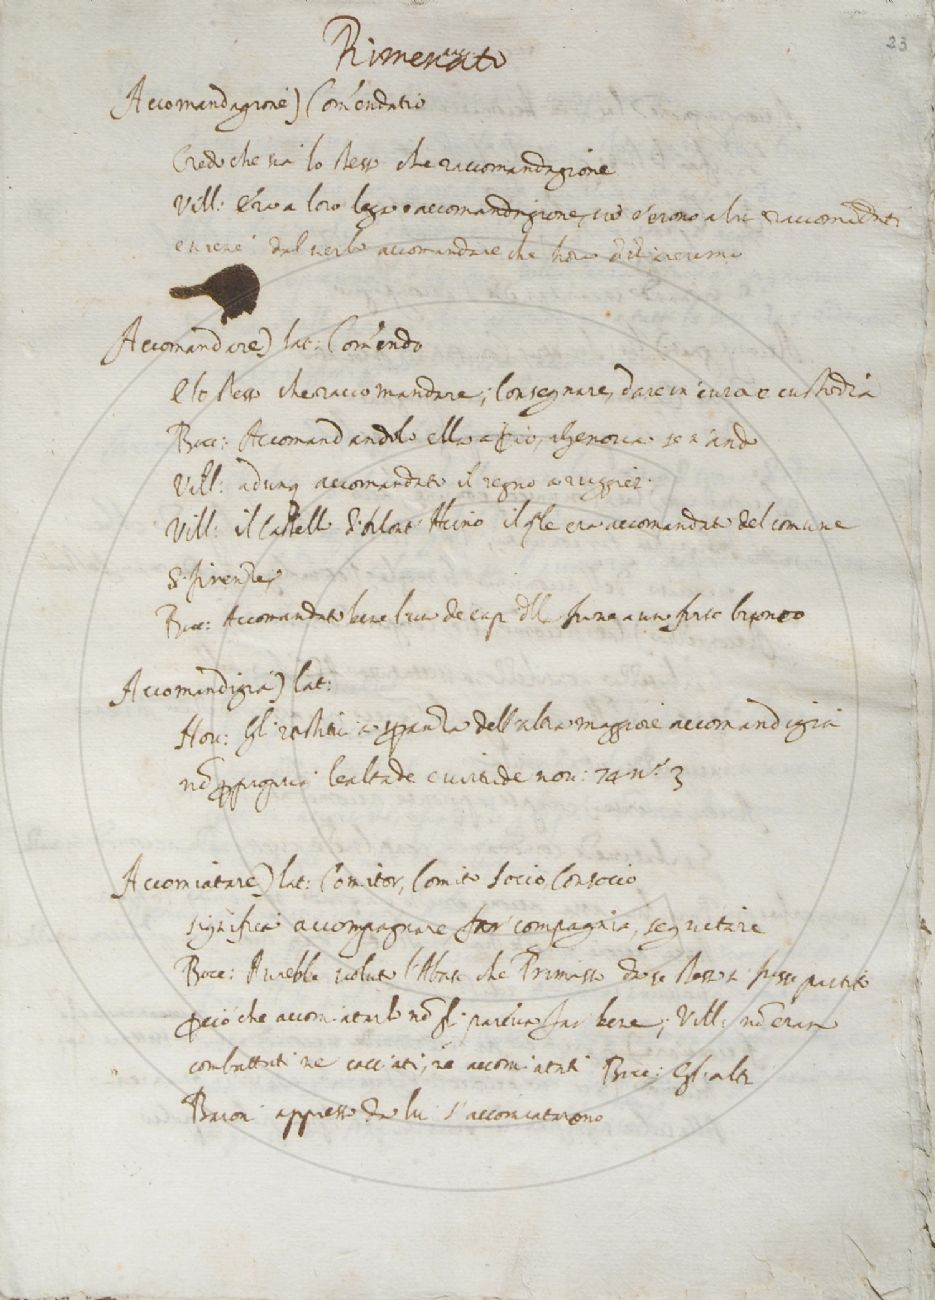 23
Rimenato
Accomandagione) Com̃endatio
Credo che sia lo stesso che raccomandagione
Vill: Era a loro lega o accomandigione, cio e' erono a lui raccomandati
e viene dal verbo accomandare che hora
Accomandare) lat: Com̃endo
E lo stesso che raccomandare, Consegnare, dare in cura e custodia
Bocc: Accomandandolo ella a Dio, al Genova se n'andò
Vill: adunq accomandato il regno a ruggieri
Vill: il Castello era accomandato del comune
Firenze
Bocc: Accomandato bene l'uno de capi della fune a uno forte bronco
Accomandigia) lat:
Nou: Gl' speranza dell'altra maggiore accomandigia
lealtade e virtude nou: 74 n.º 3
Accomiatare) lat: Comitor, Comito Socio, Consocio
significa accompagnare far compagnia, seguitare
Bocc: Avrebbe voluto l'Abate che Primasso da se stesso si fosse partito
ꝑcio che accomiatarlo nō gli pareva far bene; Vill: nō eran
combattuti ne cacciati, ne accomiatati Bocc: Gl'altri
Baroni appresso da lui s'accomiatarono